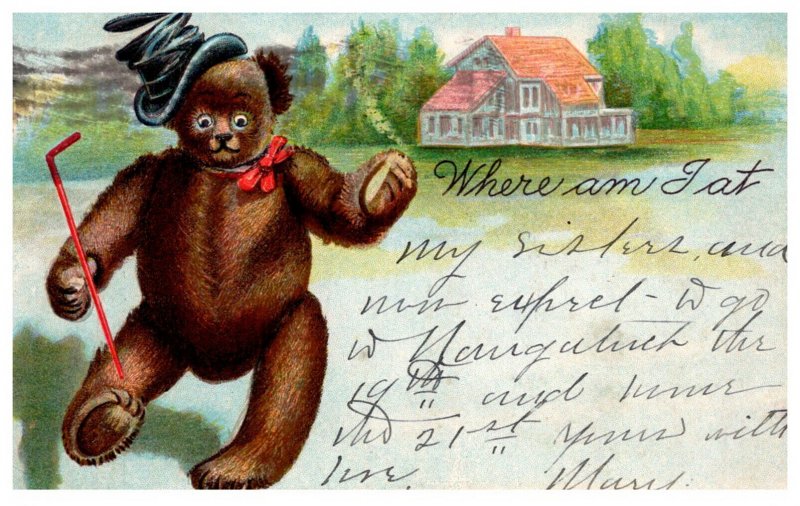 Where am I at
my sisters, and
now expect to go
to Naugatuck the
19th and home
the 21st yours with
love. Mary.